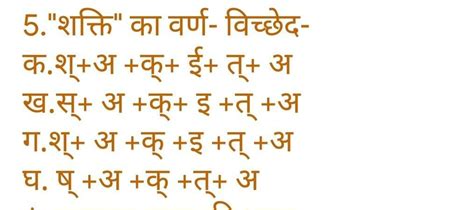 5."शक्ति" का वर्ण- विच्छेद-
क.श्+अ +क्+ ई+ त्+ अ
ख.स्+ अ +क्+ इ +त् +अ
ग.श्+ अ +क् +इ +त् +अ
घ. ष् +अ +क् +त्+ अ